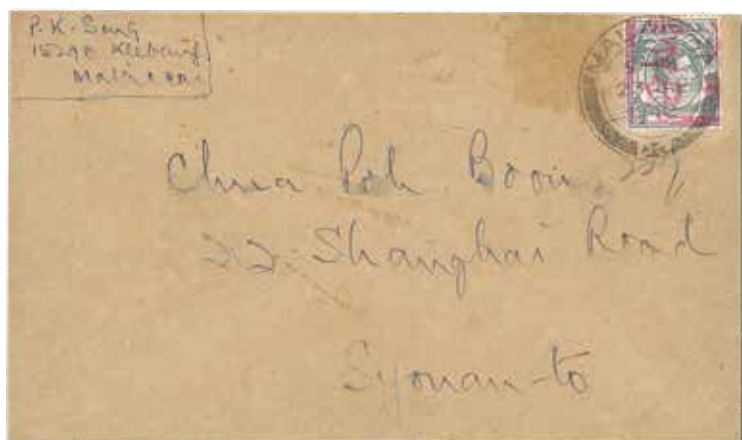 P.K. Song
1529C Klebang
Malacca.
MALACCA
Chua Poh Boon.
22. Shanghai Road
Syonan-to